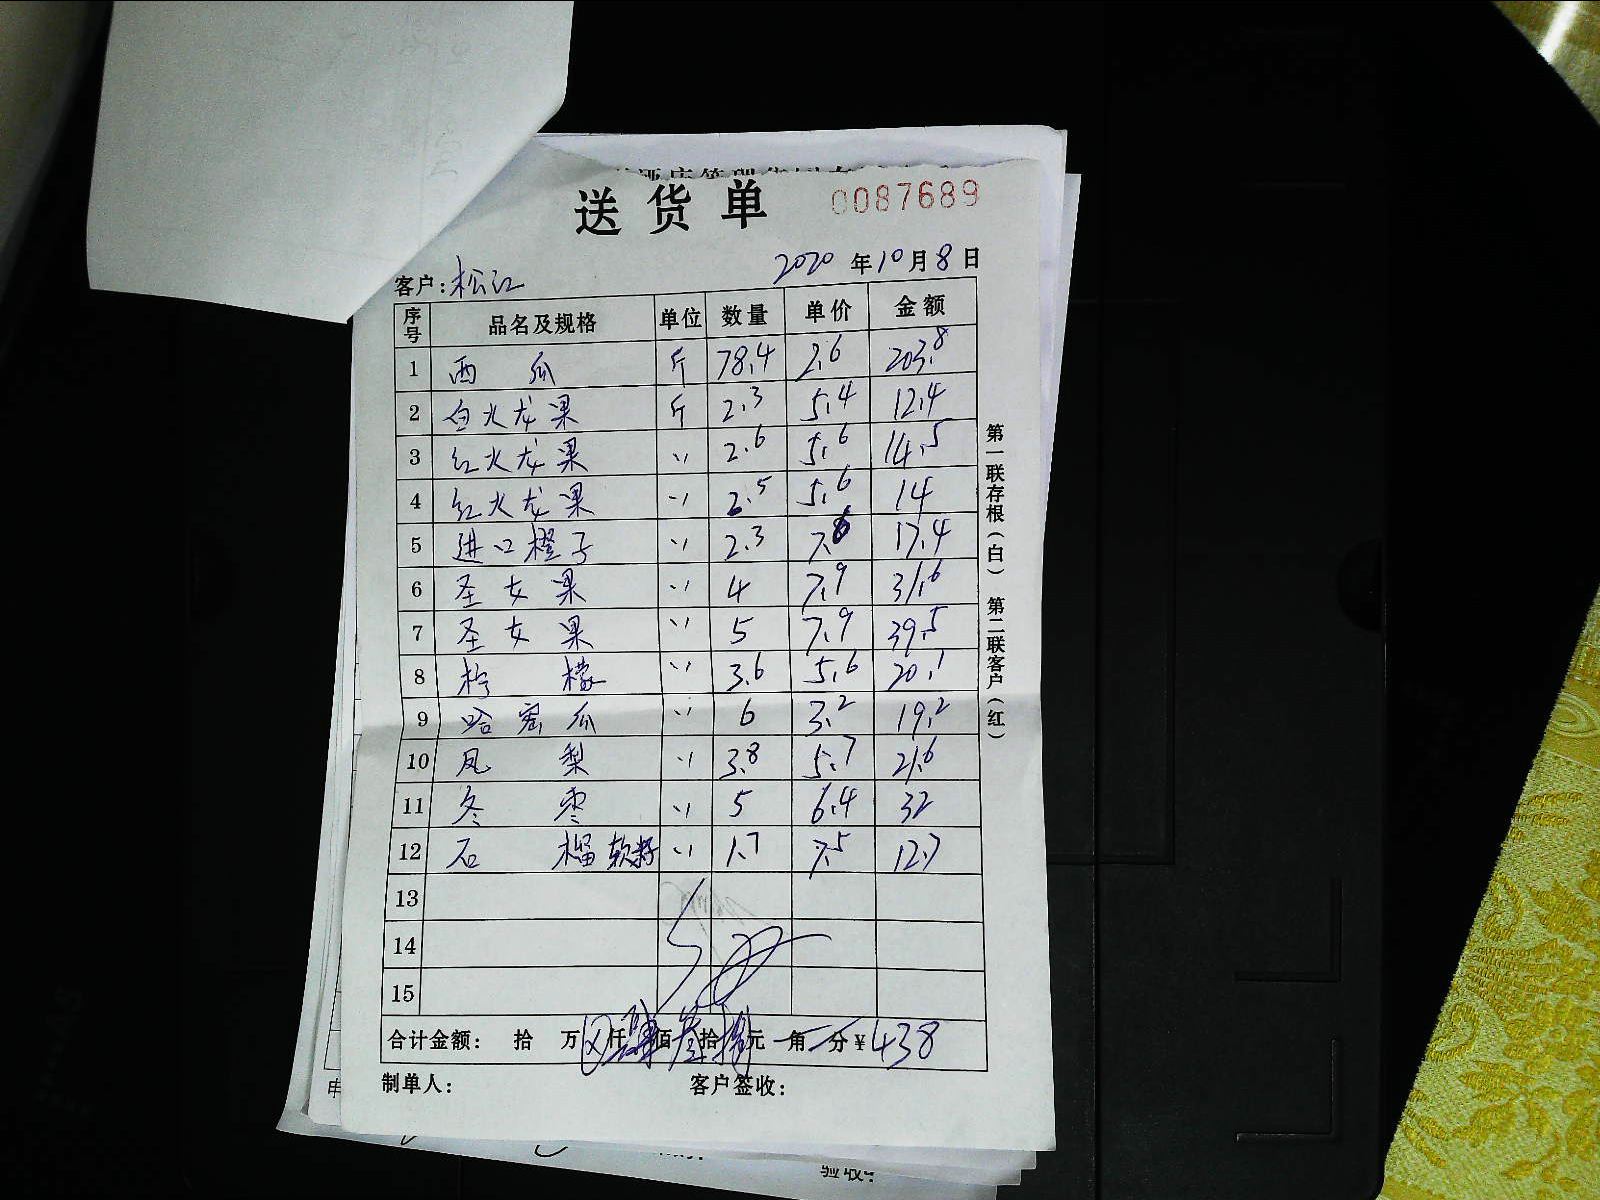 送货单 0087689
2020年10月8日
客户:松江
序号 品名及规格 单位 数量 单价 金额
1 西瓜 斤 78.4 2.6 203.8
2 白火龙果 斤 2.3 5.4 12.4
3 红火龙果 〃 2.6 5.6 14.5
4 红火龙果 〃 2.5 5.6 14
5 进口橙子 〃 2.3 7.6 17.4
6 圣女果 〃 4 7.9 31.6
7 圣女果 〃 5 7.9 39.5
8 柠檬 〃 3.6 5.6 20.1
9 哈密瓜 〃 6 3.2 19.2
10 凤梨 〃 3.8 5.7 21.6
11 冬枣 〃 5 6.4 32
12 石榴软籽 〃 1.7 7.5 12.7
13
14
15
合计金额: 拾 万 仟肆佰叁拾捌元 角 分¥438
制单人: 客户签收:
第一联存根(白) 第二联客户(红)
验收: